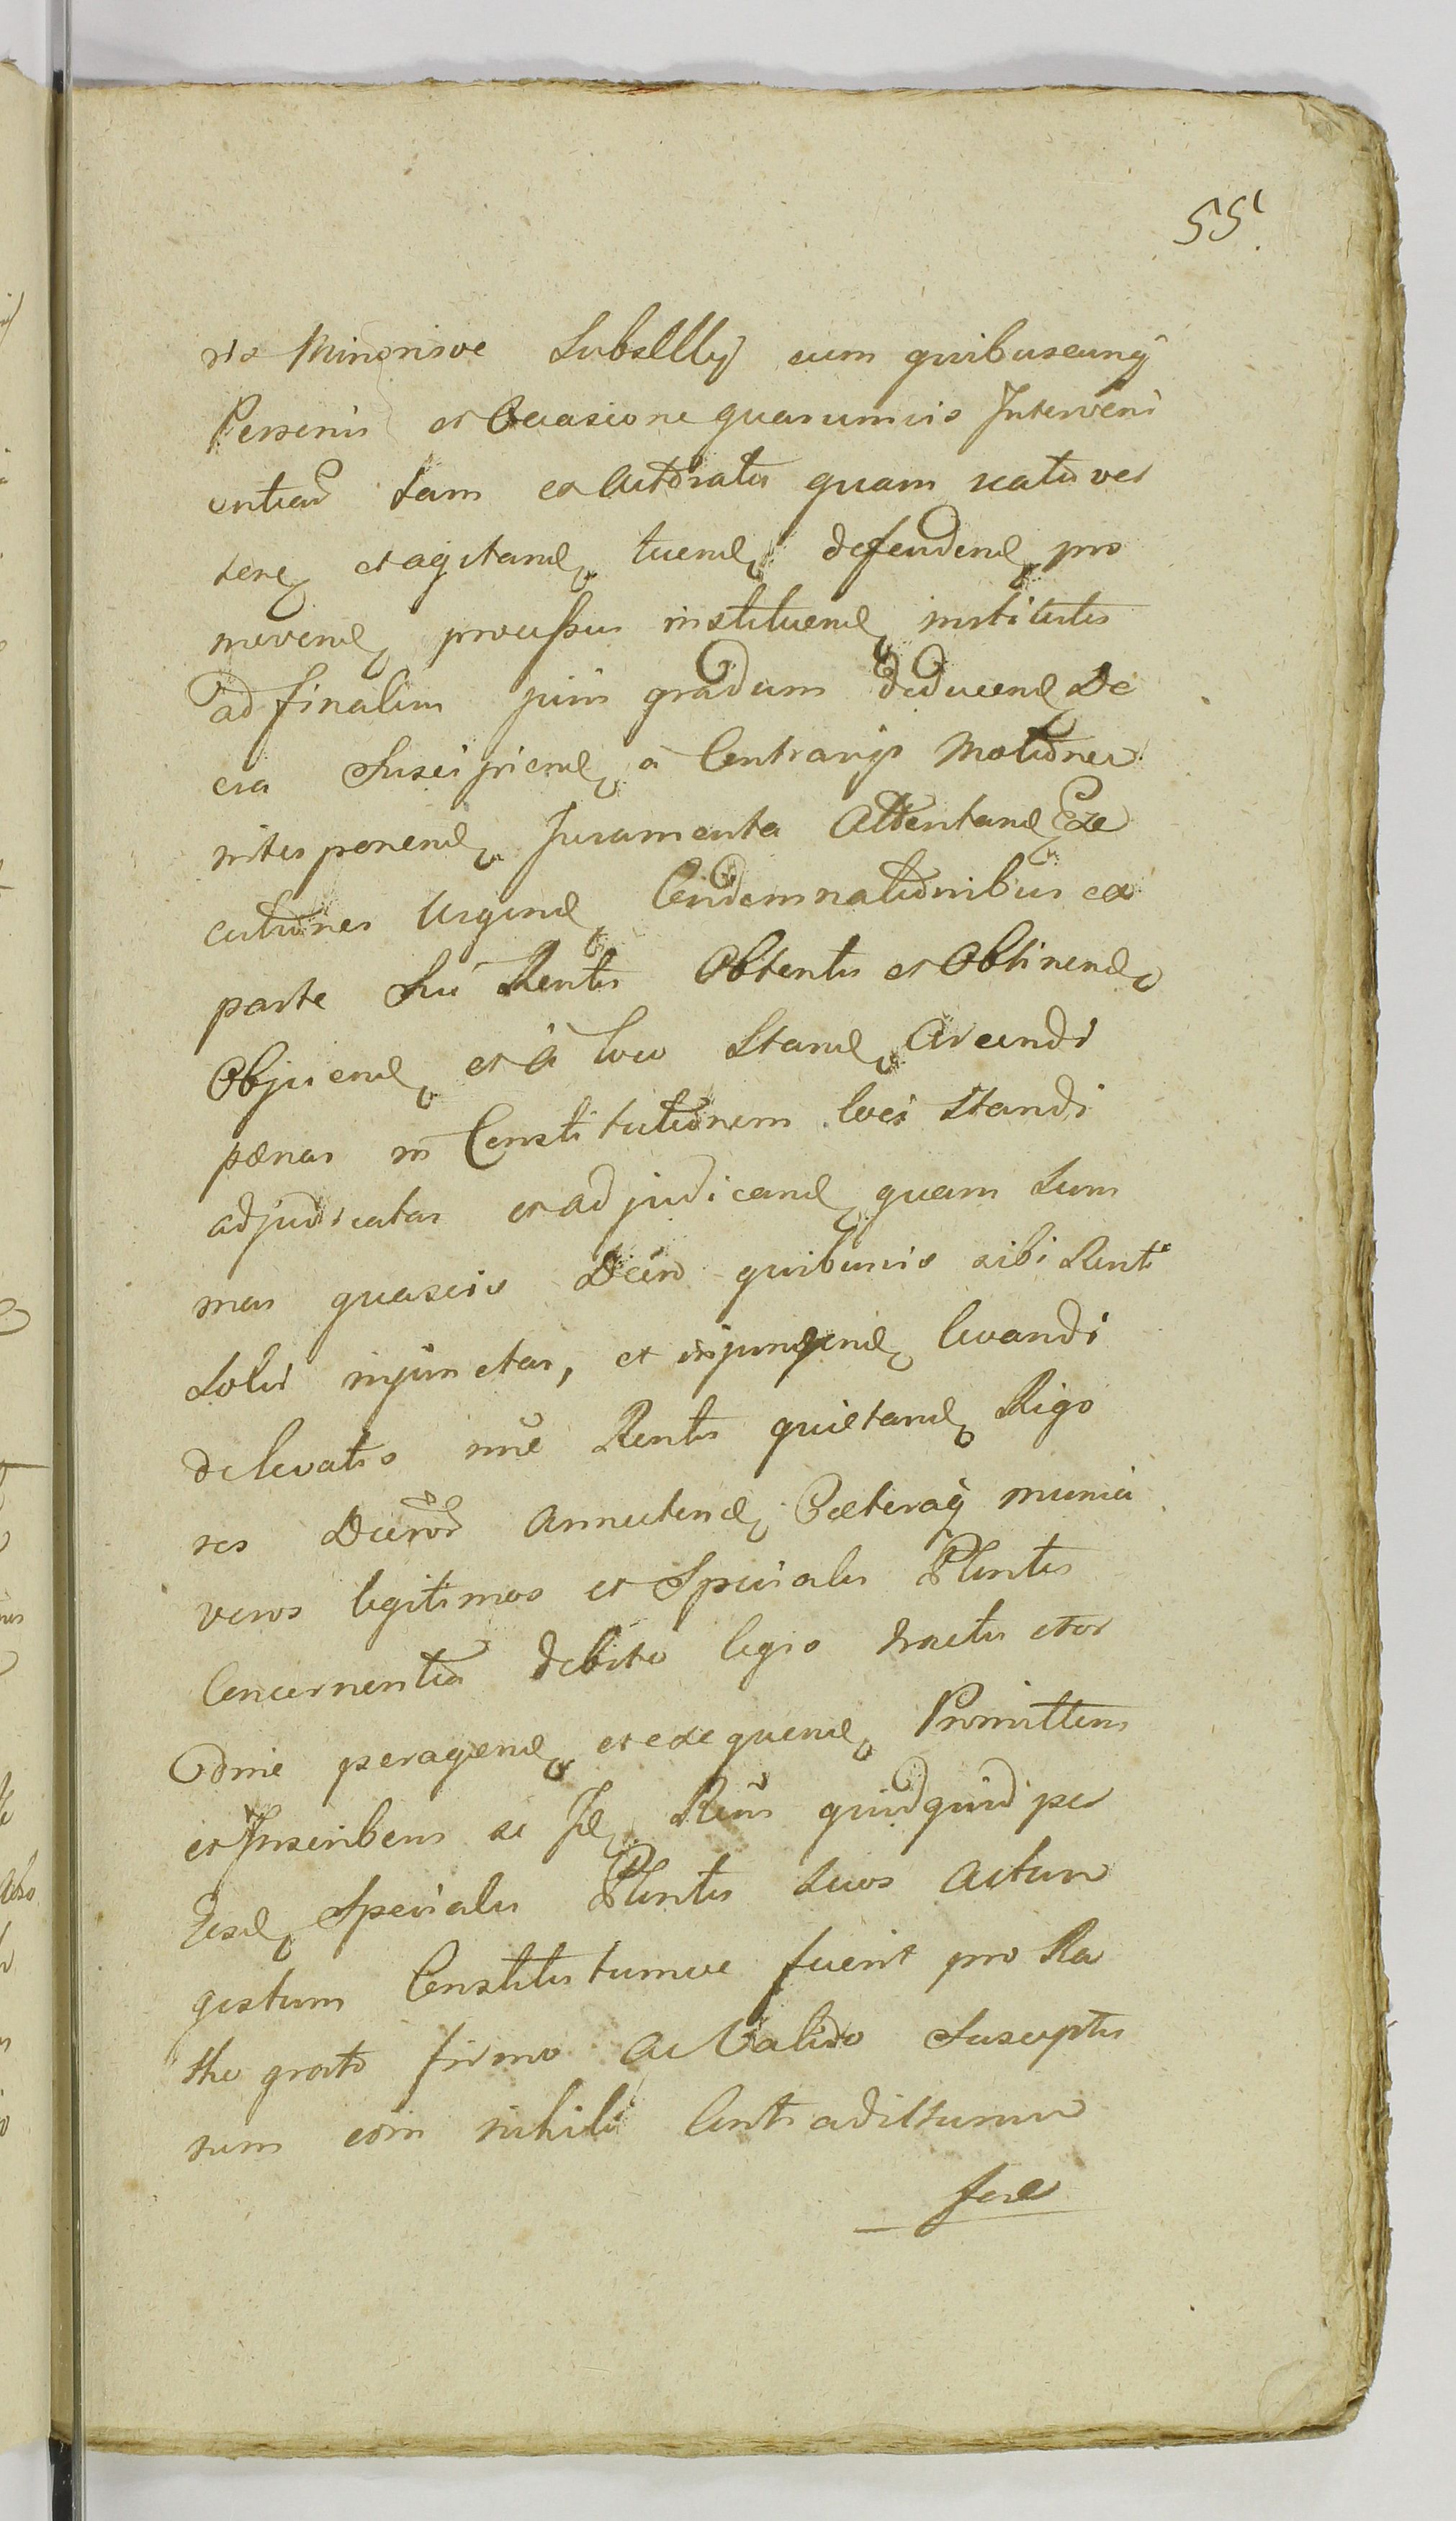 55.
ris Minorisve Subsellij cum quibuscunq̃
Personis et Occasione quarumvis Interveni
entiar̃ tam ex Actoratu quam reatu ver
ten̄ et agitand̄ tuend̄ defendend̄ pro
movend̄ processus instituend̄ institutis
ad finalem juris gradum deducend̄ De
cra Suscipiend̄ a Contrarijs Motiones
interponend̄ Juramenta Attentand̄ Exe
cutiones Urgend̄ Condemnationibus ex
parte Sui Rentis Obtentis et Obtinend̄
Objiciend̄ et à loco Stand̄ Arcendi
pænas in Constitutionem loci standi
adjudicatas et adjudicand̄ quam Sum
mas quasvis Decro quibusvis sibi Renti
Solvi injunctas, et injungend̄ levandi
de levatis nne Rentis quietand̄ Rigo
res Decror̃ Annectend̄ Cæteraq̃ munia
veros legitimos et Speciales Plentes
Concernentia debito legis tractu et or
dine peragend̄ et exequend̄ Promittens
et Inscribens se Id̄ Rens quidquid per
Eosd̄ Speciales Plentes Suos Actum
gestum Constitutumve fuerit pro Ra
tho grato firmo ac Valido Suscepta
rum eoin nihili Contradicturum
fore